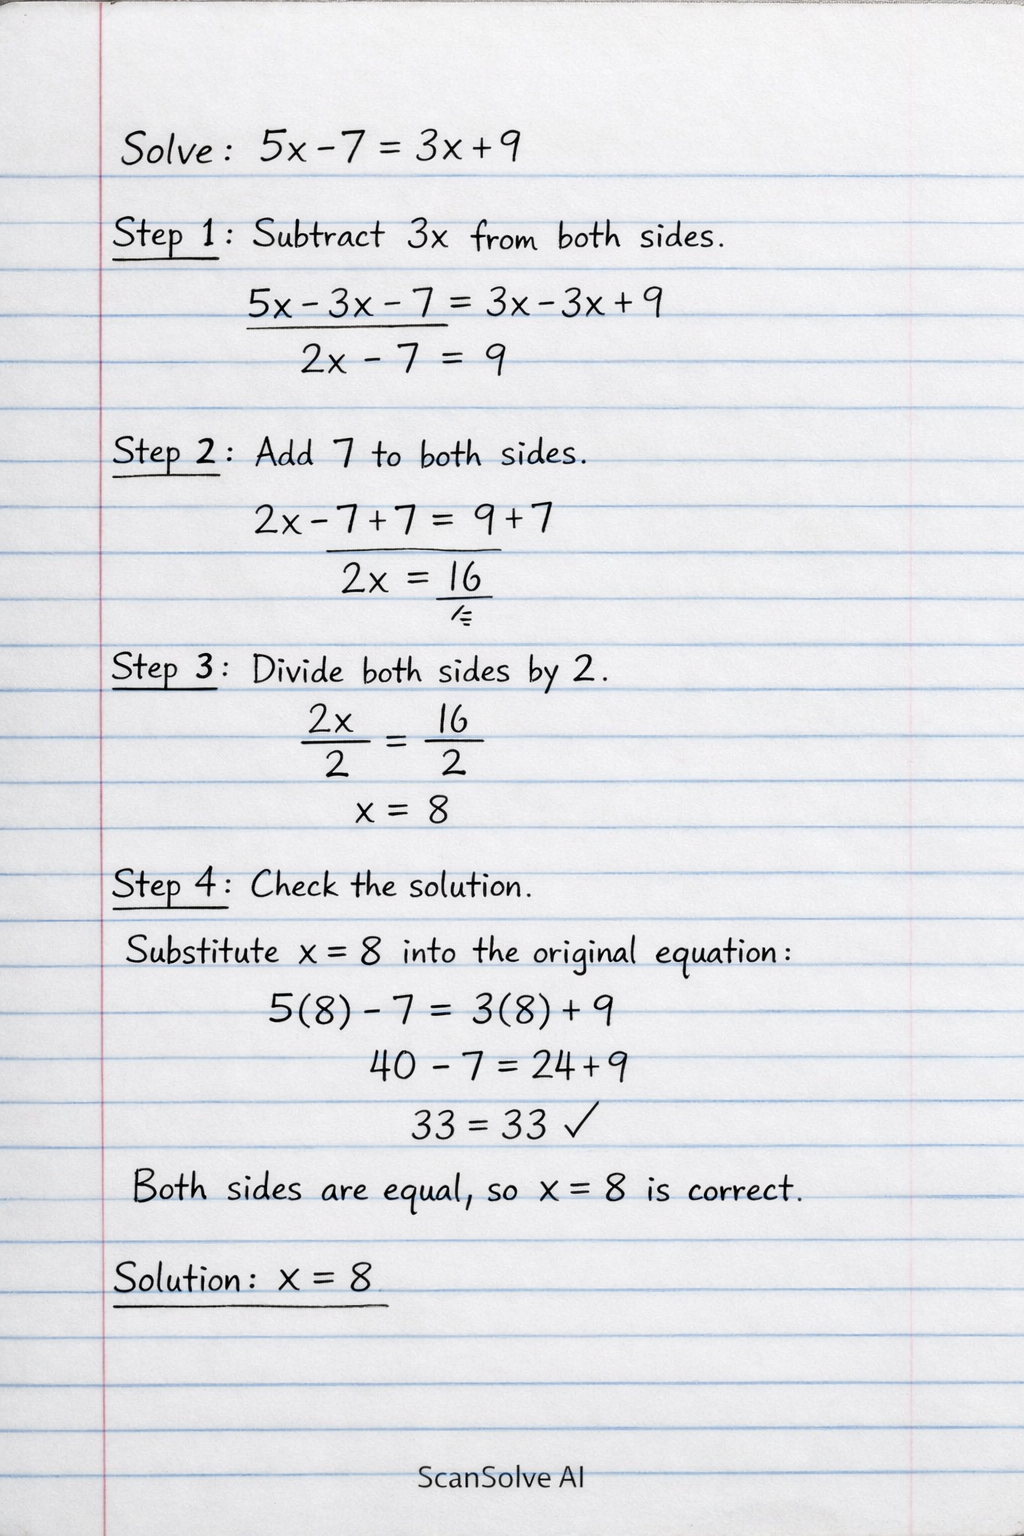 Solve: 5x - 7 = 3x + 9
Step 1: Subtract 3x from both sides.
5x - 3x - 7 = 3x - 3x + 9
2x - 7 = 9
Step 2: Add 7 to both sides.
2x - 7 + 7 = 9 + 7
2x = 16
Step 3: Divide both sides by 2.
2x/2 = 16/2
x = 8
Step 4: Check the solution.
Substitute x = 8 into the original equation:
5(8) - 7 = 3(8) + 9
40 - 7 = 24 + 9
33 = 33 ✓
Both sides are equal, so x = 8 is correct.
Solution: x = 8
ScanSolve AI